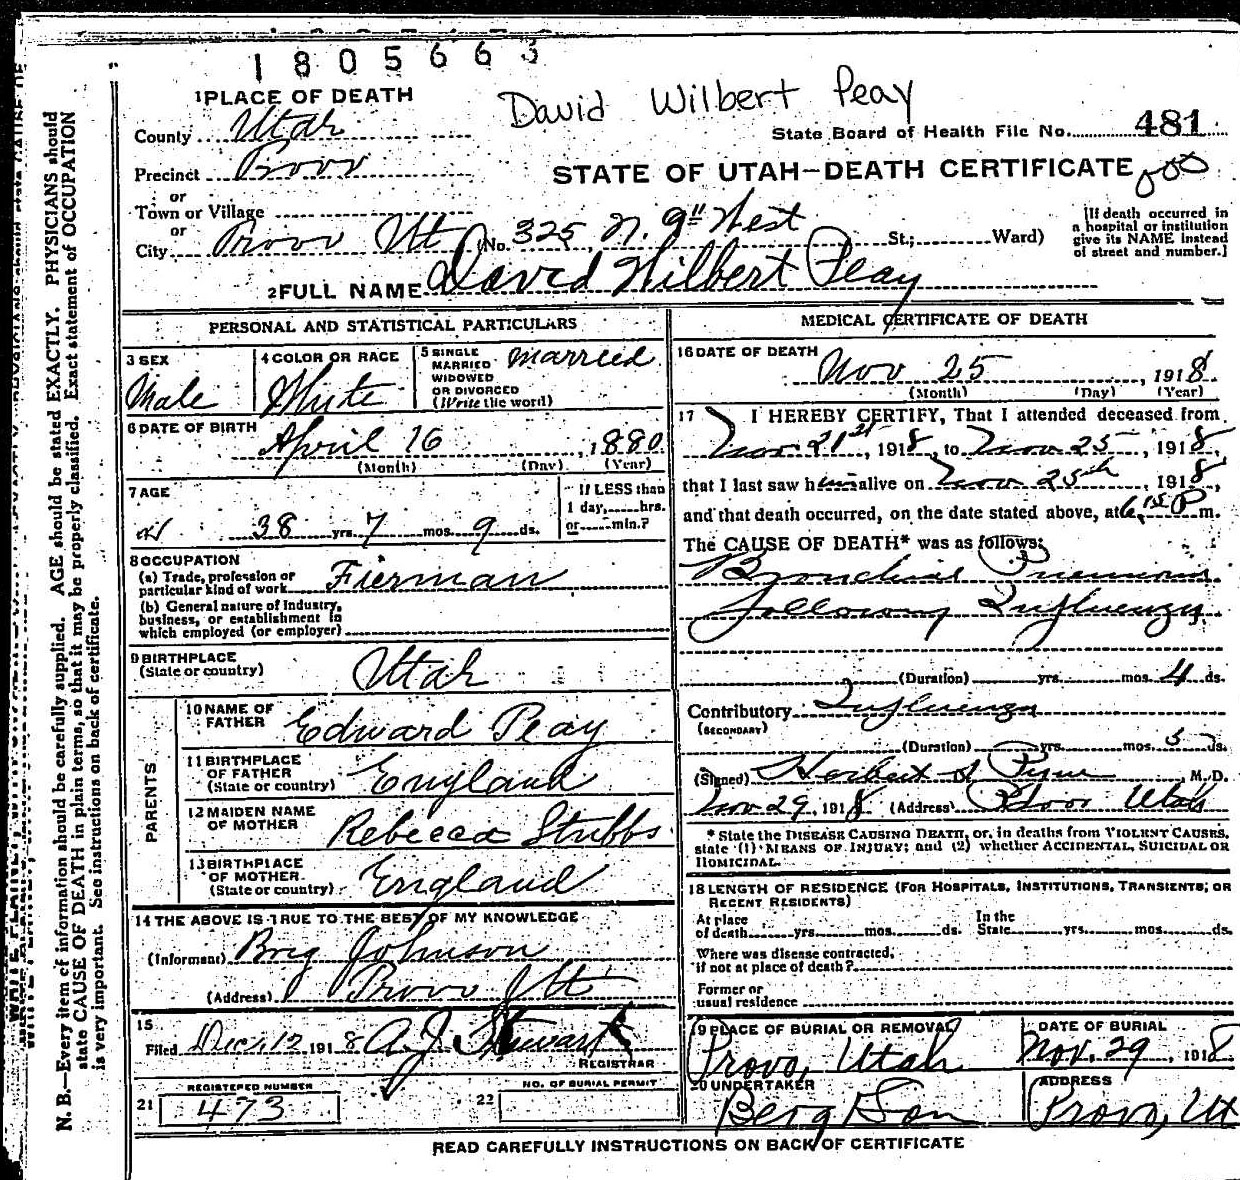 1805663
David Wilbert Peay
1 PLACE OF DEATH
County Utah
State Board of Health File No. 481
Precinct Provo
STATE OF UTAH—DEATH CERTIFICATE
or
Town or Village
or
City Provo Ut (No. 325 N. 9" West St.; Ward)
[If death occurred in
a hospital or institution
give its NAME instead
of street and number.]
2 FULL NAME David Wilbert Peay
PERSONAL AND STATISTICAL PARTICULARS
3 SEX
Male
4 COLOR OR RACE
White
5 SINGLE
MARRIED
WIDOWED
OR DIVORCED
(Write the word)
Married
6 DATE OF BIRTH
April 16, 1880
(Month) (Day) (Year)
7 AGE
38 yrs. 7 mos. 9 ds.
If LESS than
1 day, hrs.
or min.?
8 OCCUPATION
(a) Trade, profession or
particular kind of work Fierman
(b) General nature of Industry,
business, or establishment in
which employed (or employer)
9 BIRTHPLACE
(State or country) Utah
PARENTS
10 NAME OF
FATHER Edward Peay
11 BIRTHPLACE
OF FATHER
(State or country) England
12 MAIDEN NAME
OF MOTHER Rebecca Stubbs
13 BIRTHPLACE
OF MOTHER
(State or country) England
14 THE ABOVE IS TRUE TO THE BEST OF MY KNOWLEDGE
(Informant) Brig Johnson
(Address) Provo Ut
15
Filed Dec. 12 1918 A. J. Stewart
REGISTRAR
REGISTERED NUMBER
21 473
NO. OF BURIAL PERMIT
22
MEDICAL CERTIFICATE OF DEATH
16 DATE OF DEATH
Nov 25, 1918
(Month) (Day) (Year)
17 I HEREBY CERTIFY, That I attended deceased from
Nov 21st, 1918, to Nov 25, 1918,
that I last saw him alive on Nov 25th, 1918,
and that death occurred, on the date stated above, at 6 15 P m.
The CAUSE OF DEATH* was as follows:
Bronchial Pneumonia
following Influenza
(Duration) yrs. mos. 4 ds.
Contributory Influenza
(SECONDARY)
(Duration) yrs. mos. 5 ds.
(Signed) Herbert S Pyne, M. D.
Nov 29, 1918 (Address) Provo Utah
* State the DISEASE CAUSING DEATH, or, in deaths from VIOLENT CAUSES,
state (1) MEANS OF INJURY; and (2) whether ACCIDENTAL, SUICIDAL OR
HOMICIDAL.
18 LENGTH OF RESIDENCE (FOR HOSPITALS, INSTITUTIONS, TRANSIENTS, OR
RECENT RESIDENTS)
At place
of death yrs. mos. ds.
In the
State yrs. mos. ds.
Where was disease contracted,
if not at place of death?
Former or
usual residence
19 PLACE OF BURIAL OR REMOVAL
Provo, Utah
DATE OF BURIAL
Nov. 29, 1918
20 UNDERTAKER
Berg Son
ADDRESS
Provo, Ut
READ CAREFULLY INSTRUCTIONS ON BACK OF CERTIFICATE
N. B.—Every item of information should be carefully supplied. AGE should be stated EXACTLY. PHYSICIANS should
state CAUSE OF DEATH in plain terms, so that it may be properly classified. Exact statement of OCCUPATION
is very important. See instructions on back of certificate.